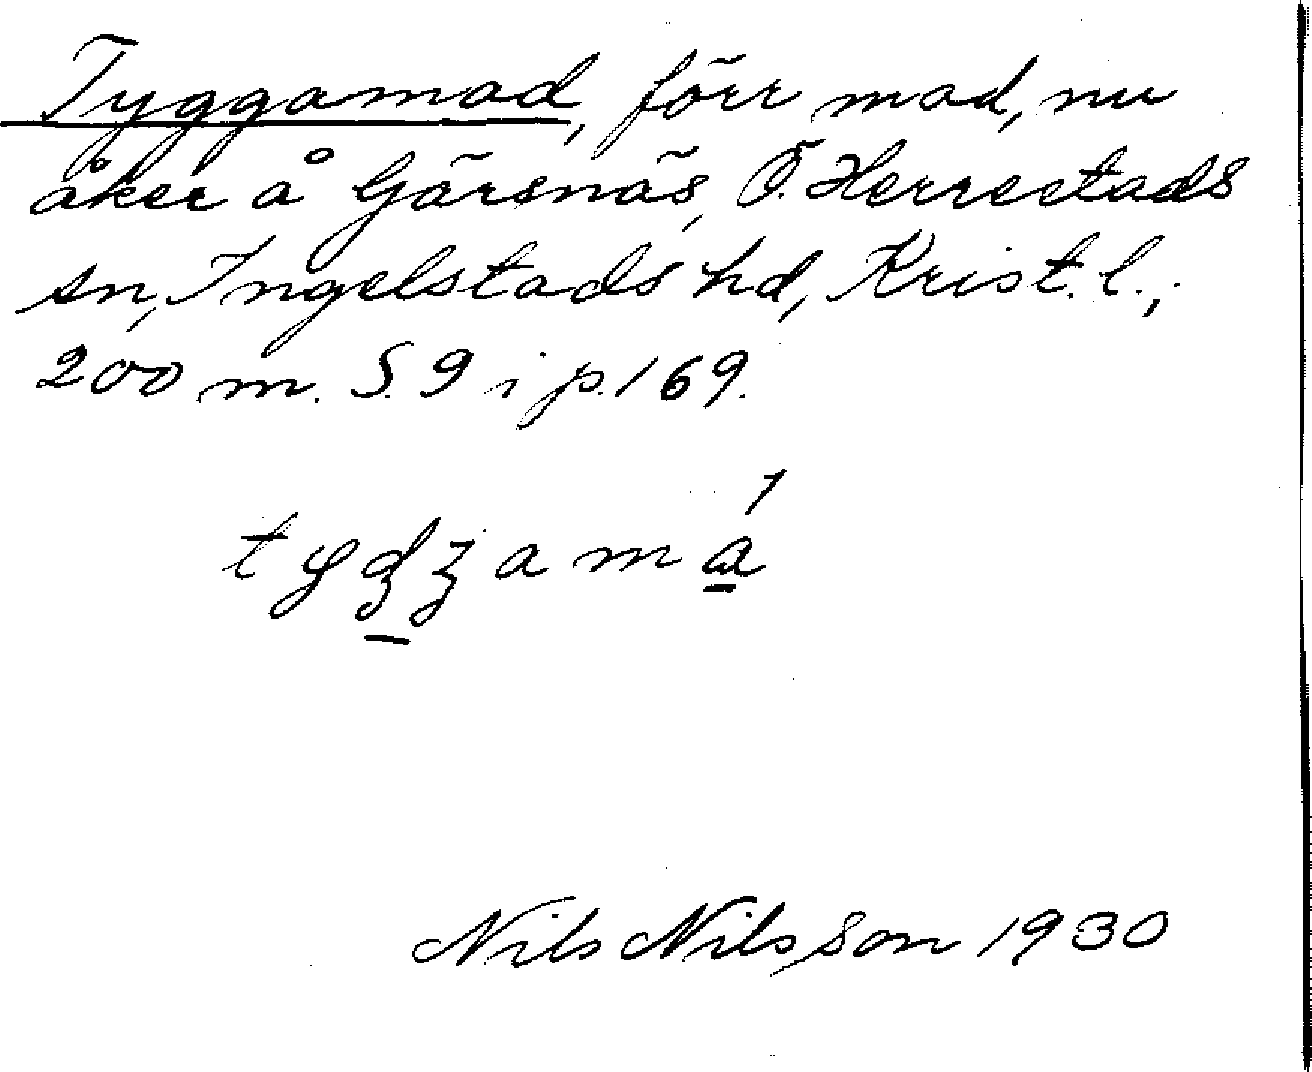 Tyggamad, förr mad, nu
åker å Gärsnäs, Ö. Herrestads
sn, Ingelstads hd, Krist. l.,
200 m. S. 9 i p. 169.
Nils Nilsson 1930